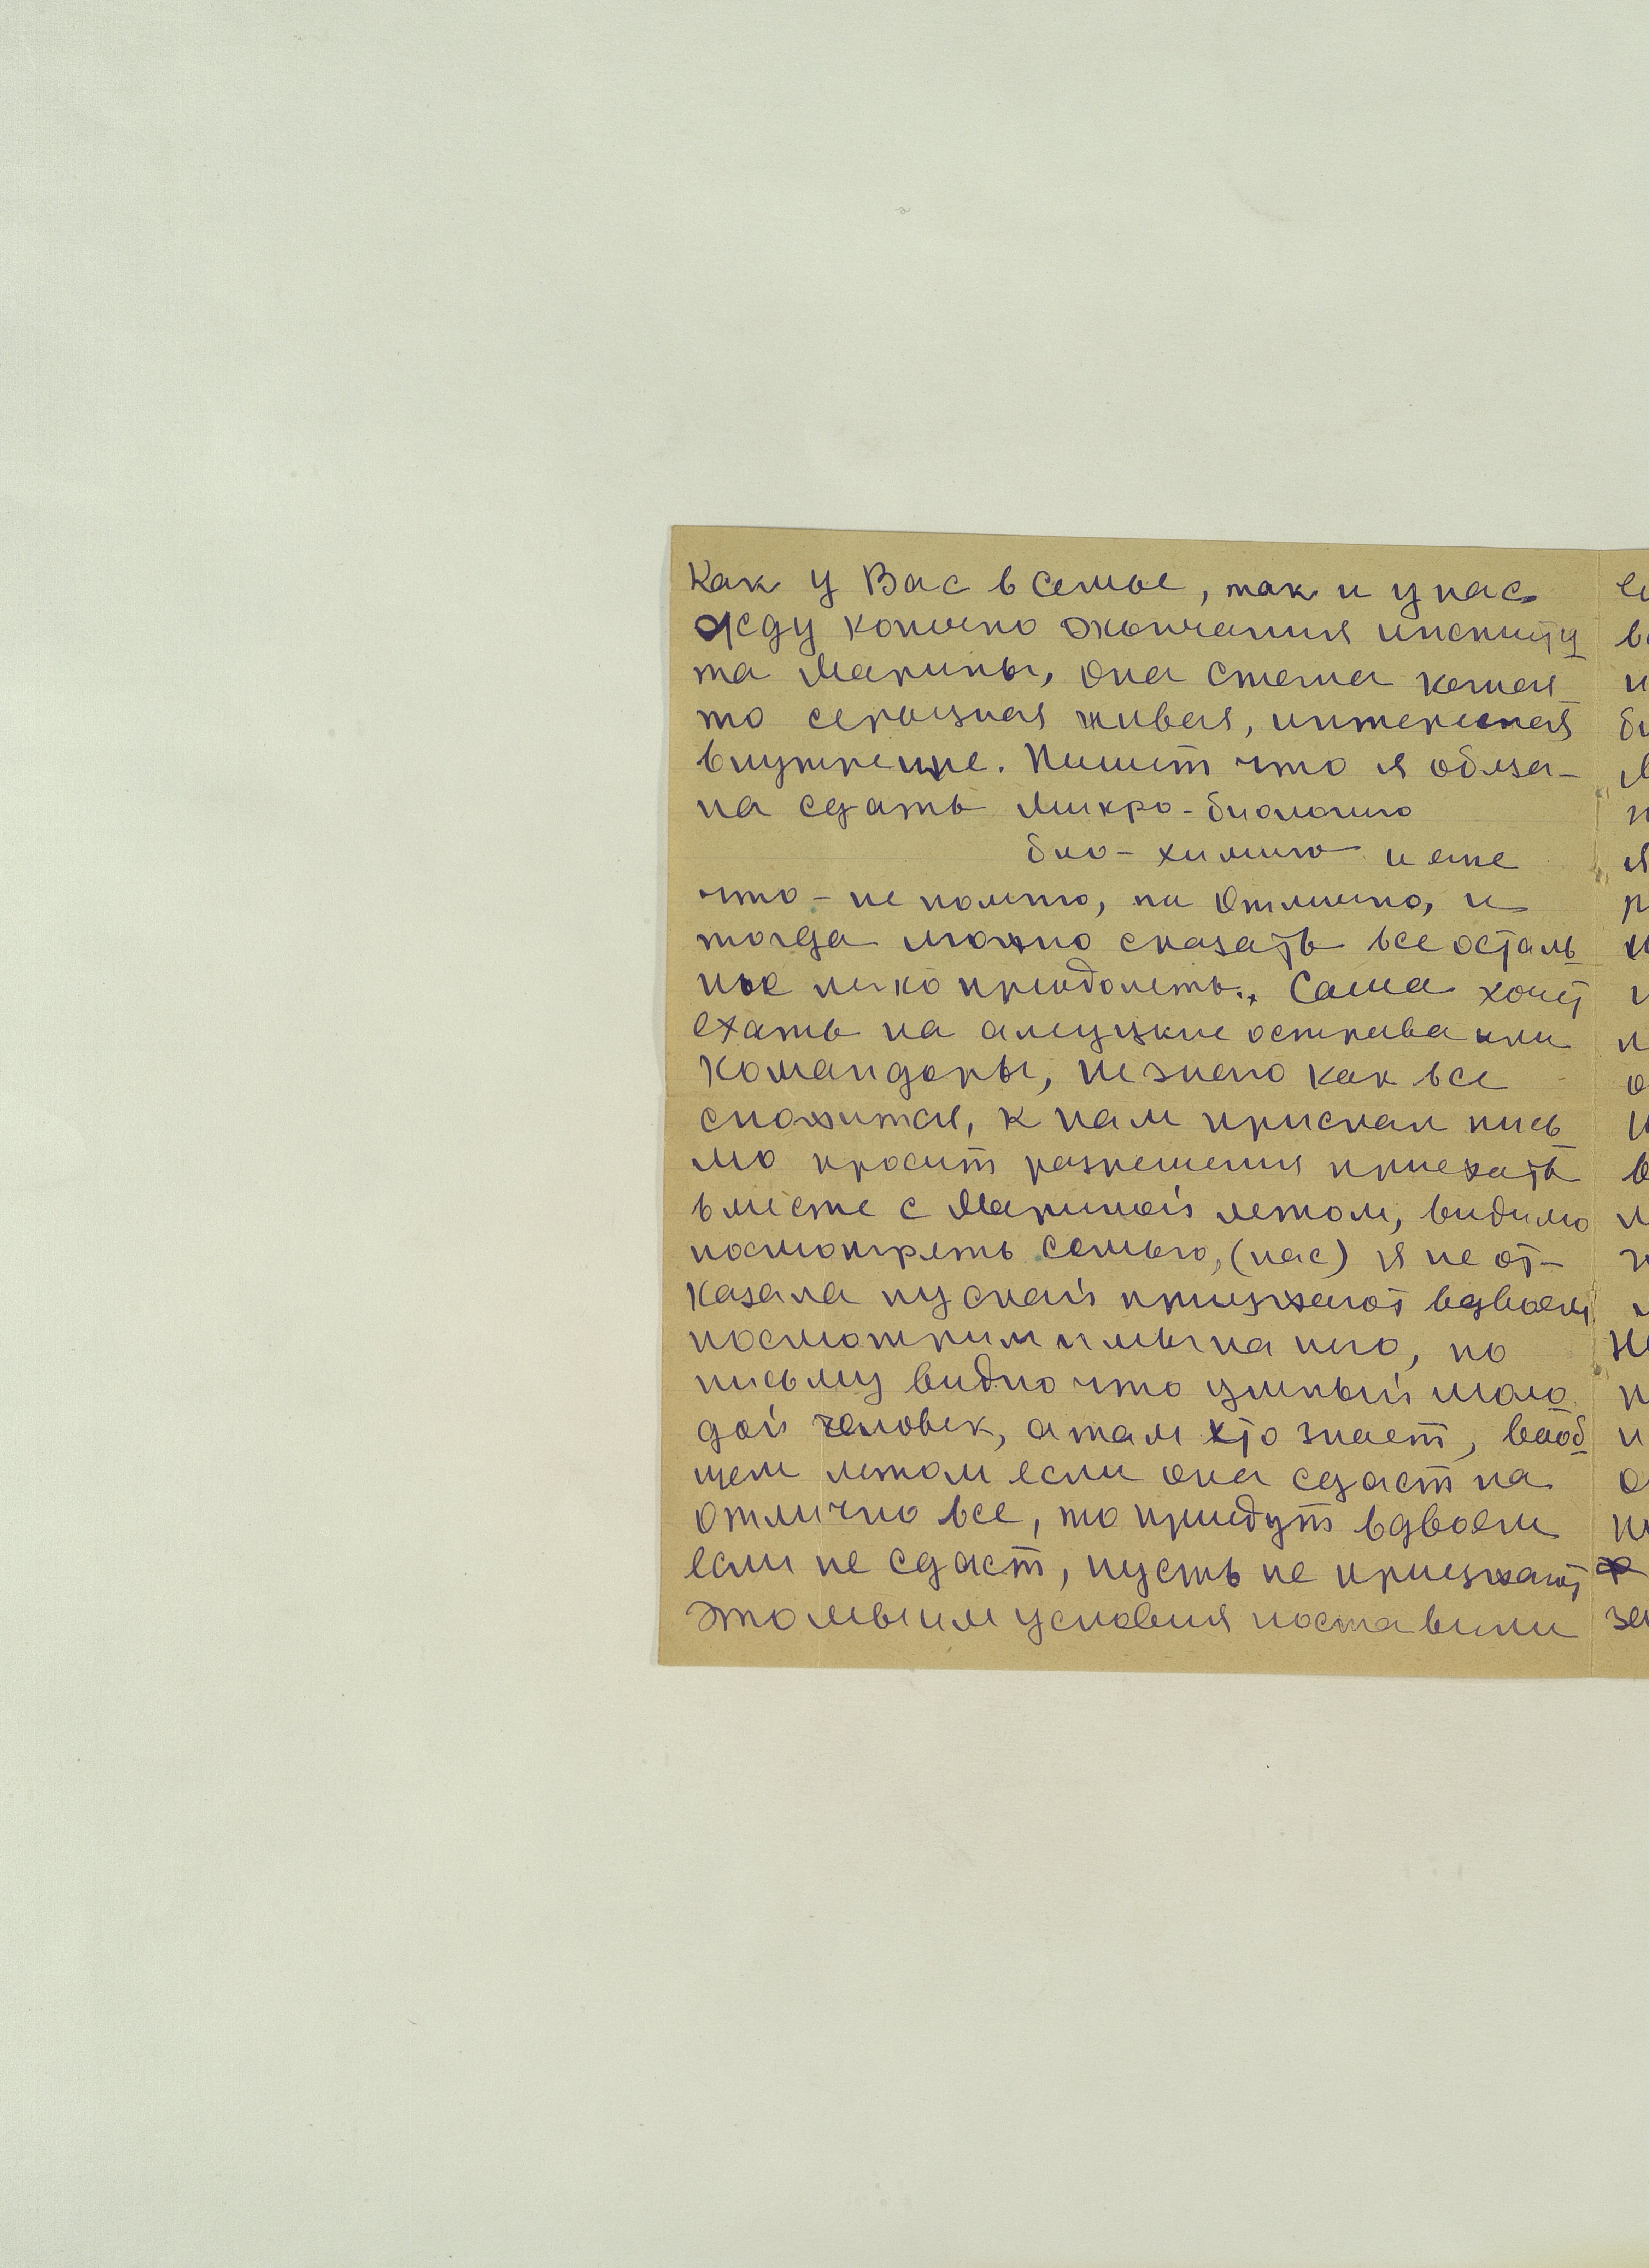 Как у Вас в семье, так и у нас
жду конечно окончания институ
та Марины, она стала какая
то серьезная живая, интересная
внутренне. Пишет что я обяза-
на сдать микро-биологию
био-химию и еще
что-не помню, на отлично, и
тогда можно сказать все осталь
ные легко преодолеть., Саша хочет
ехать на алеуцкие острова или
Командоры, не знаю как все
сложится, к нам прислал пись
мо просит разрешения приехать
вместе с Мариной летом, видимо
посмотреть семью, (нас) я не от-
казала пускай приезжают вдвоем
посмотрим и мы на него, по
письму видно что умный моло
дой человек, а там кто знает, вооб
щем летом если она сдаст на
отлично все, то приедут вдвоем
если не сдаст, пусть не приезжают
Это мы им условия поставили